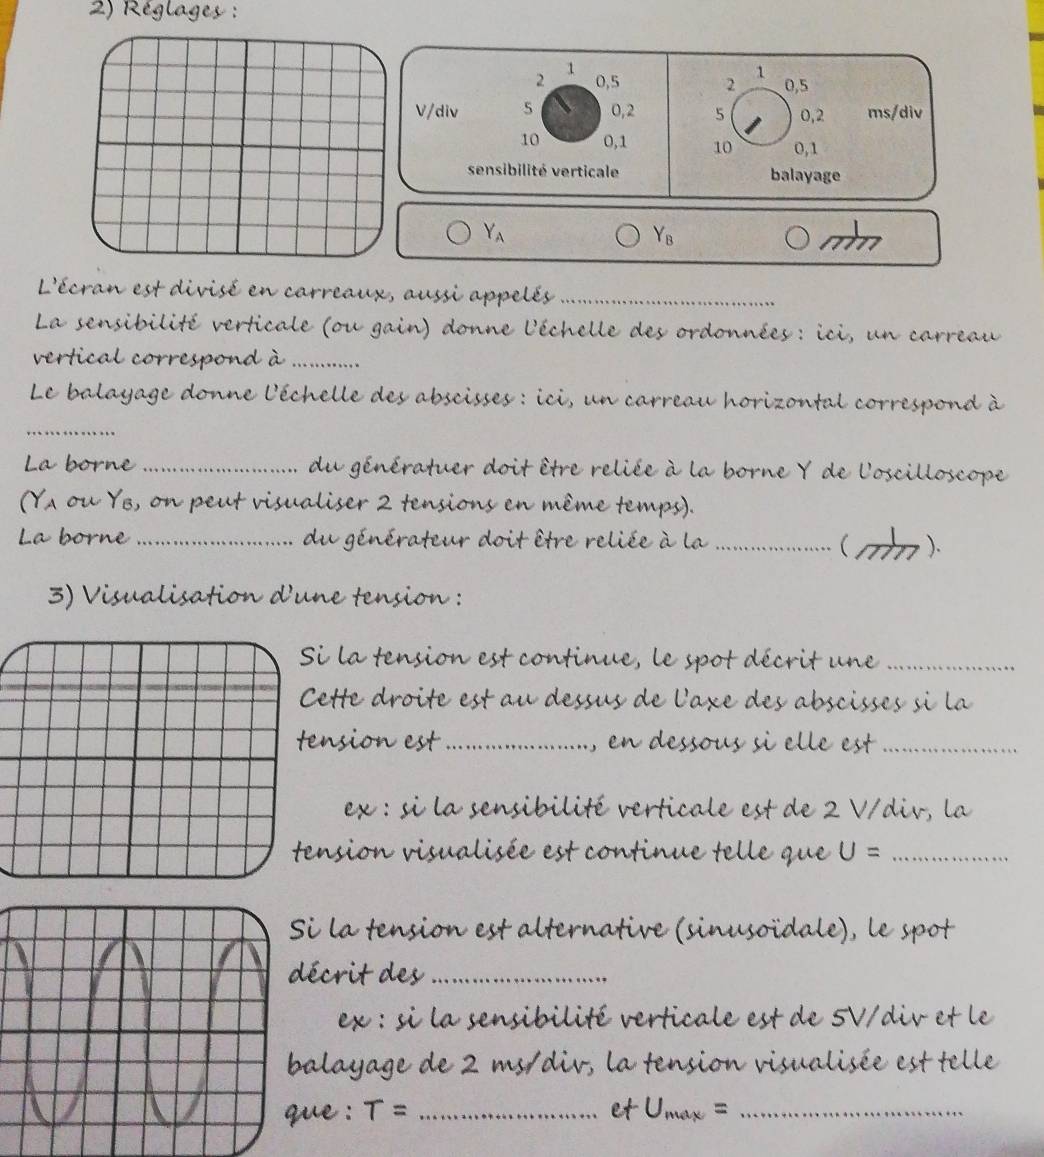 2) Réglages :
1
2 0,5
V/div 5 0,2
10 0,1
sensibilité verticale
1
2 0,5
5 0,2 ms/div
10 0,1
balayage
YA YB
L'écran est divisé en carreaux, aussi appelés ....................
La sensibilité verticale (ou gain) donne l'échelle des ordonnées : ici, un carreau
vertical correspond à ............
Le balayage donne l'échelle des abscisses : ici, un carreau horizontal correspond à
................
La borne .................... du génératuer doit être reliée à la borne Y de l'oscilloscope
(YA ou YB, on peut visualiser 2 tensions en même temps).
La borne .................... du générateur doit être reliée à la .................... ( ).
3) Visualisation d'une tension :
Si la tension est continue, le spot décrit une ....................
Cette droite est au dessus de l'axe des abscisses si la
tension est ...................., en dessous si elle est ....................
ex : si la sensibilité verticale est de 2 V/div, la
tension visualisée est continue telle que U = ....................
Si la tension est alternative (sinusoïdale), le spot
décrit des ....................
ex : si la sensibilité verticale est de 5V/div et le
balayage de 2 ms/div, la tension visualisée est telle
que : T = .................... et Umax = ....................